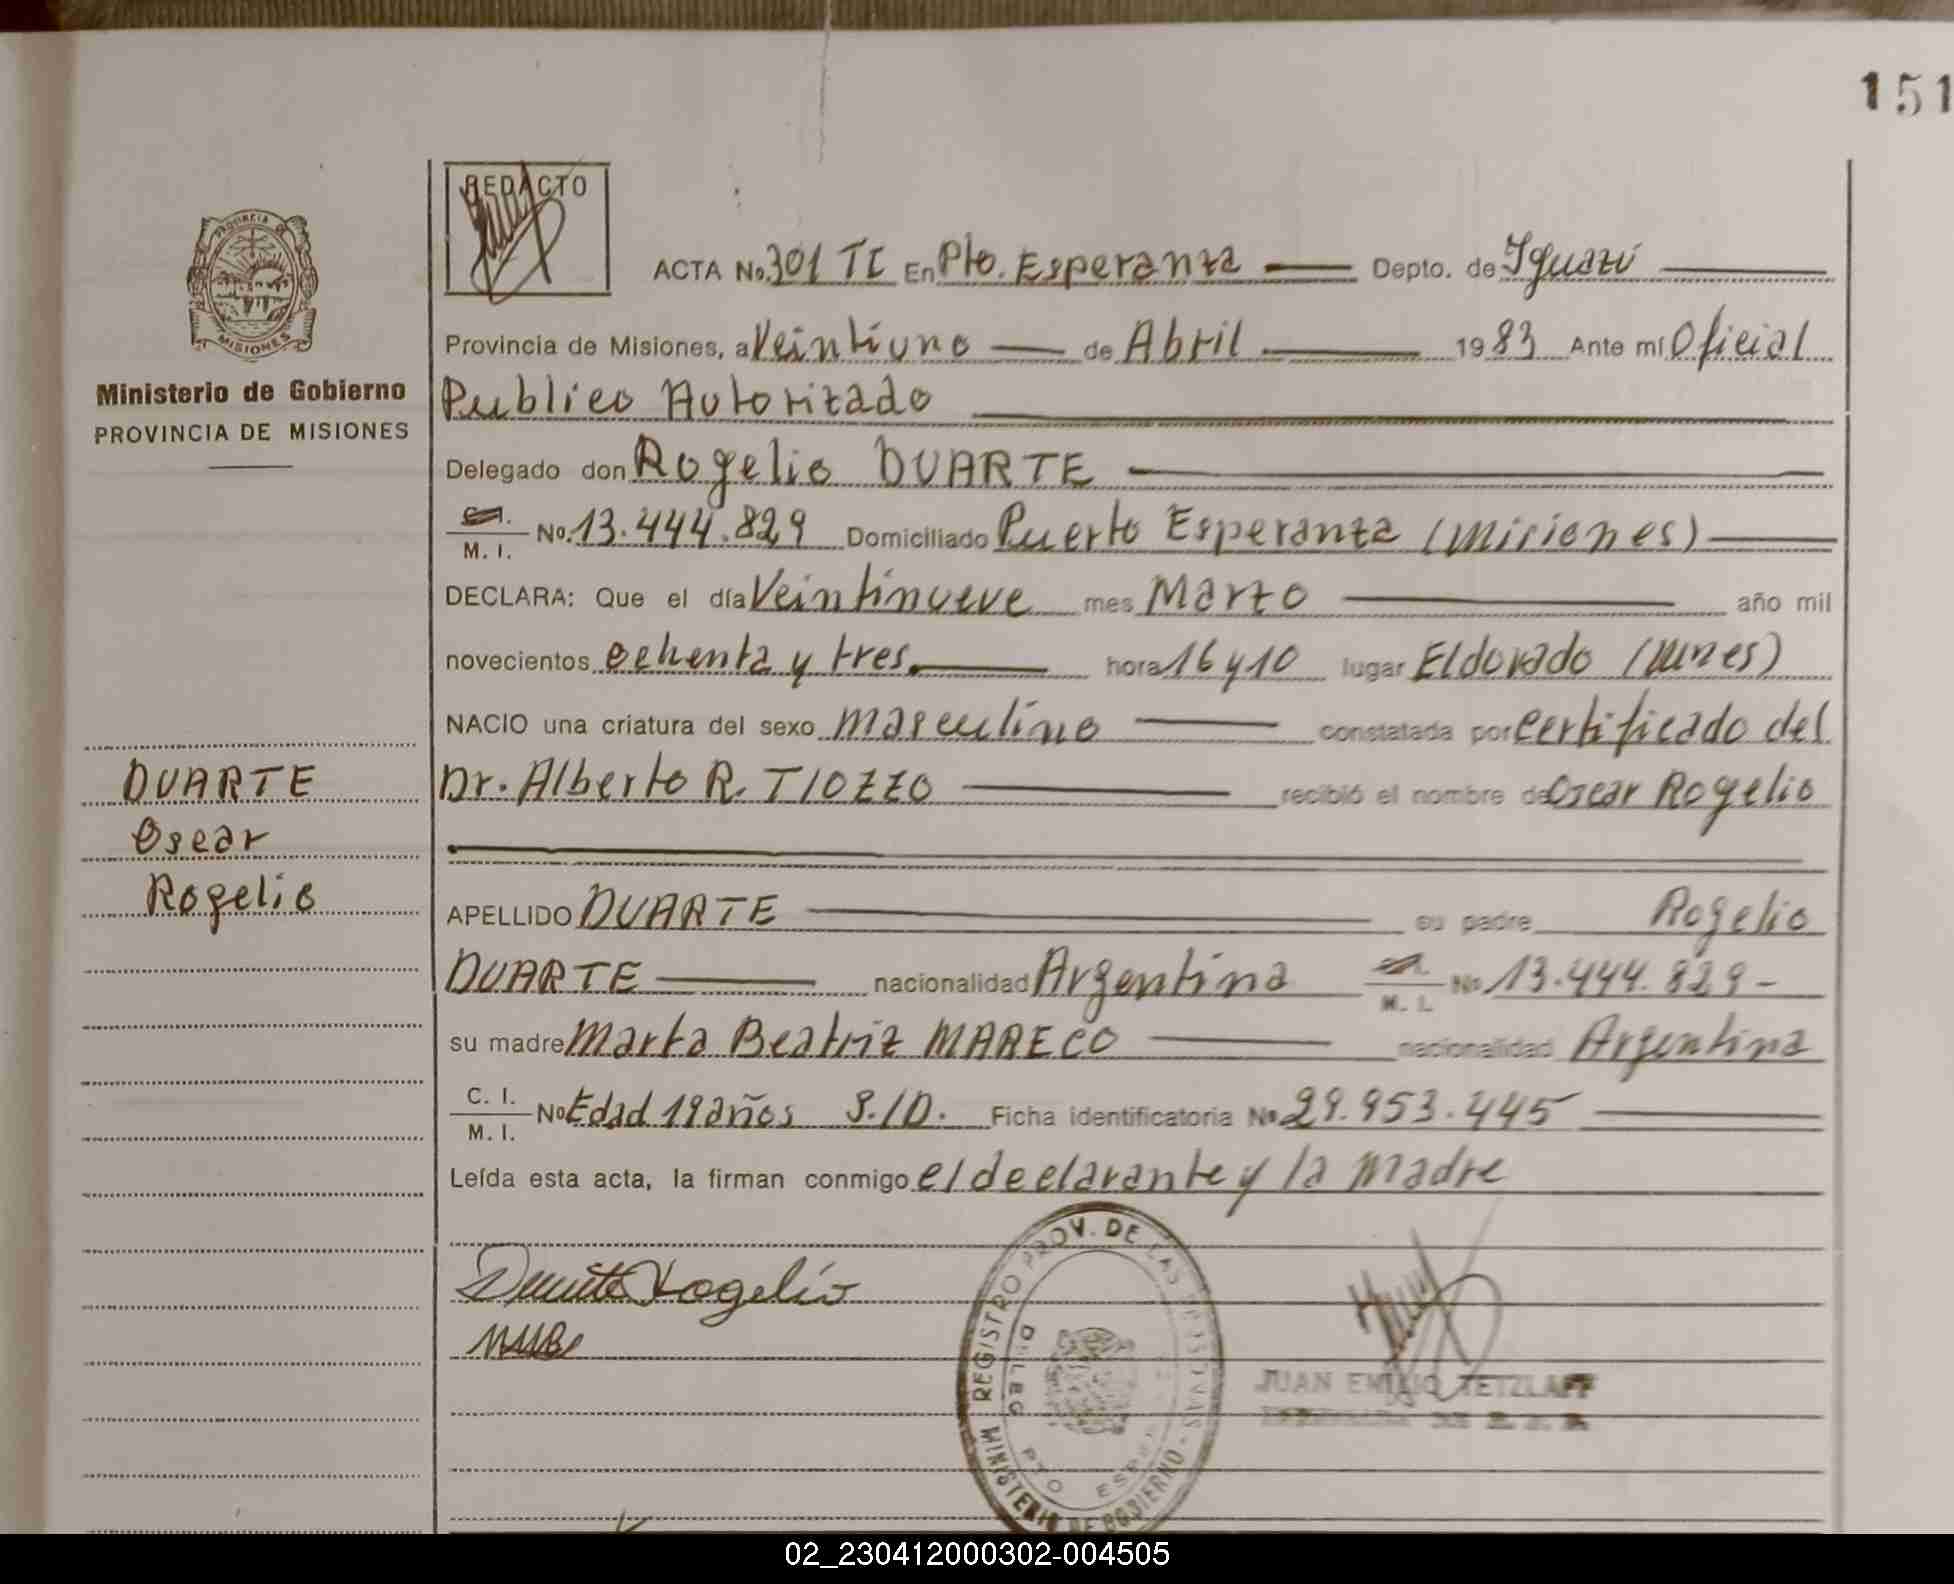 151
REDACTO
PROVINCIA DE
MISIONES
ACTA No. 301 TI En Pto. Esperanza Depto. de Iguazú
Provincia de Misiones, a Veintiuno de Abril 1983 Ante mí Oficial
Ministerio de Gobierno
Publico Autorizado
PROVINCIA DE MISIONES
Delegado don Rogelio DUARTE
M. I. No. 13.444.829 Domiciliado Puerto Esperanza (Misiones)
DECLARA: Que el día Veintinueve mes Marzo año mil
novecientos ochenta y tres. hora 16 y 10 lugar Eldorado (Mnes)
NACIO una criatura del sexo masculino constatada por certificado del
DUARTE
Dr. Alberto R. TIOZZO recibió el nombre de Oscar Rogelio
Oscar
Rogelio
APELLIDO DUARTE su padre Rogelio
DUARTE nacionalidad Argentina M. I. No 13.444.829-
su madre Marta Beatriz MARECO nacionalidad Argentina
C. I. M. I. No Edad 19 años S./D. Ficha identificatoria No 29.953.445
Leída esta acta, la firman conmigo el declarante y la Madre
Duarte Rogelio
REGISTRO PROV. DE LAS PERSONAS - MINISTERIO DE GOBIERNO
DELEG PTO ESPE
JUAN EMILIO TETZLAFF
02_230412000302-004505